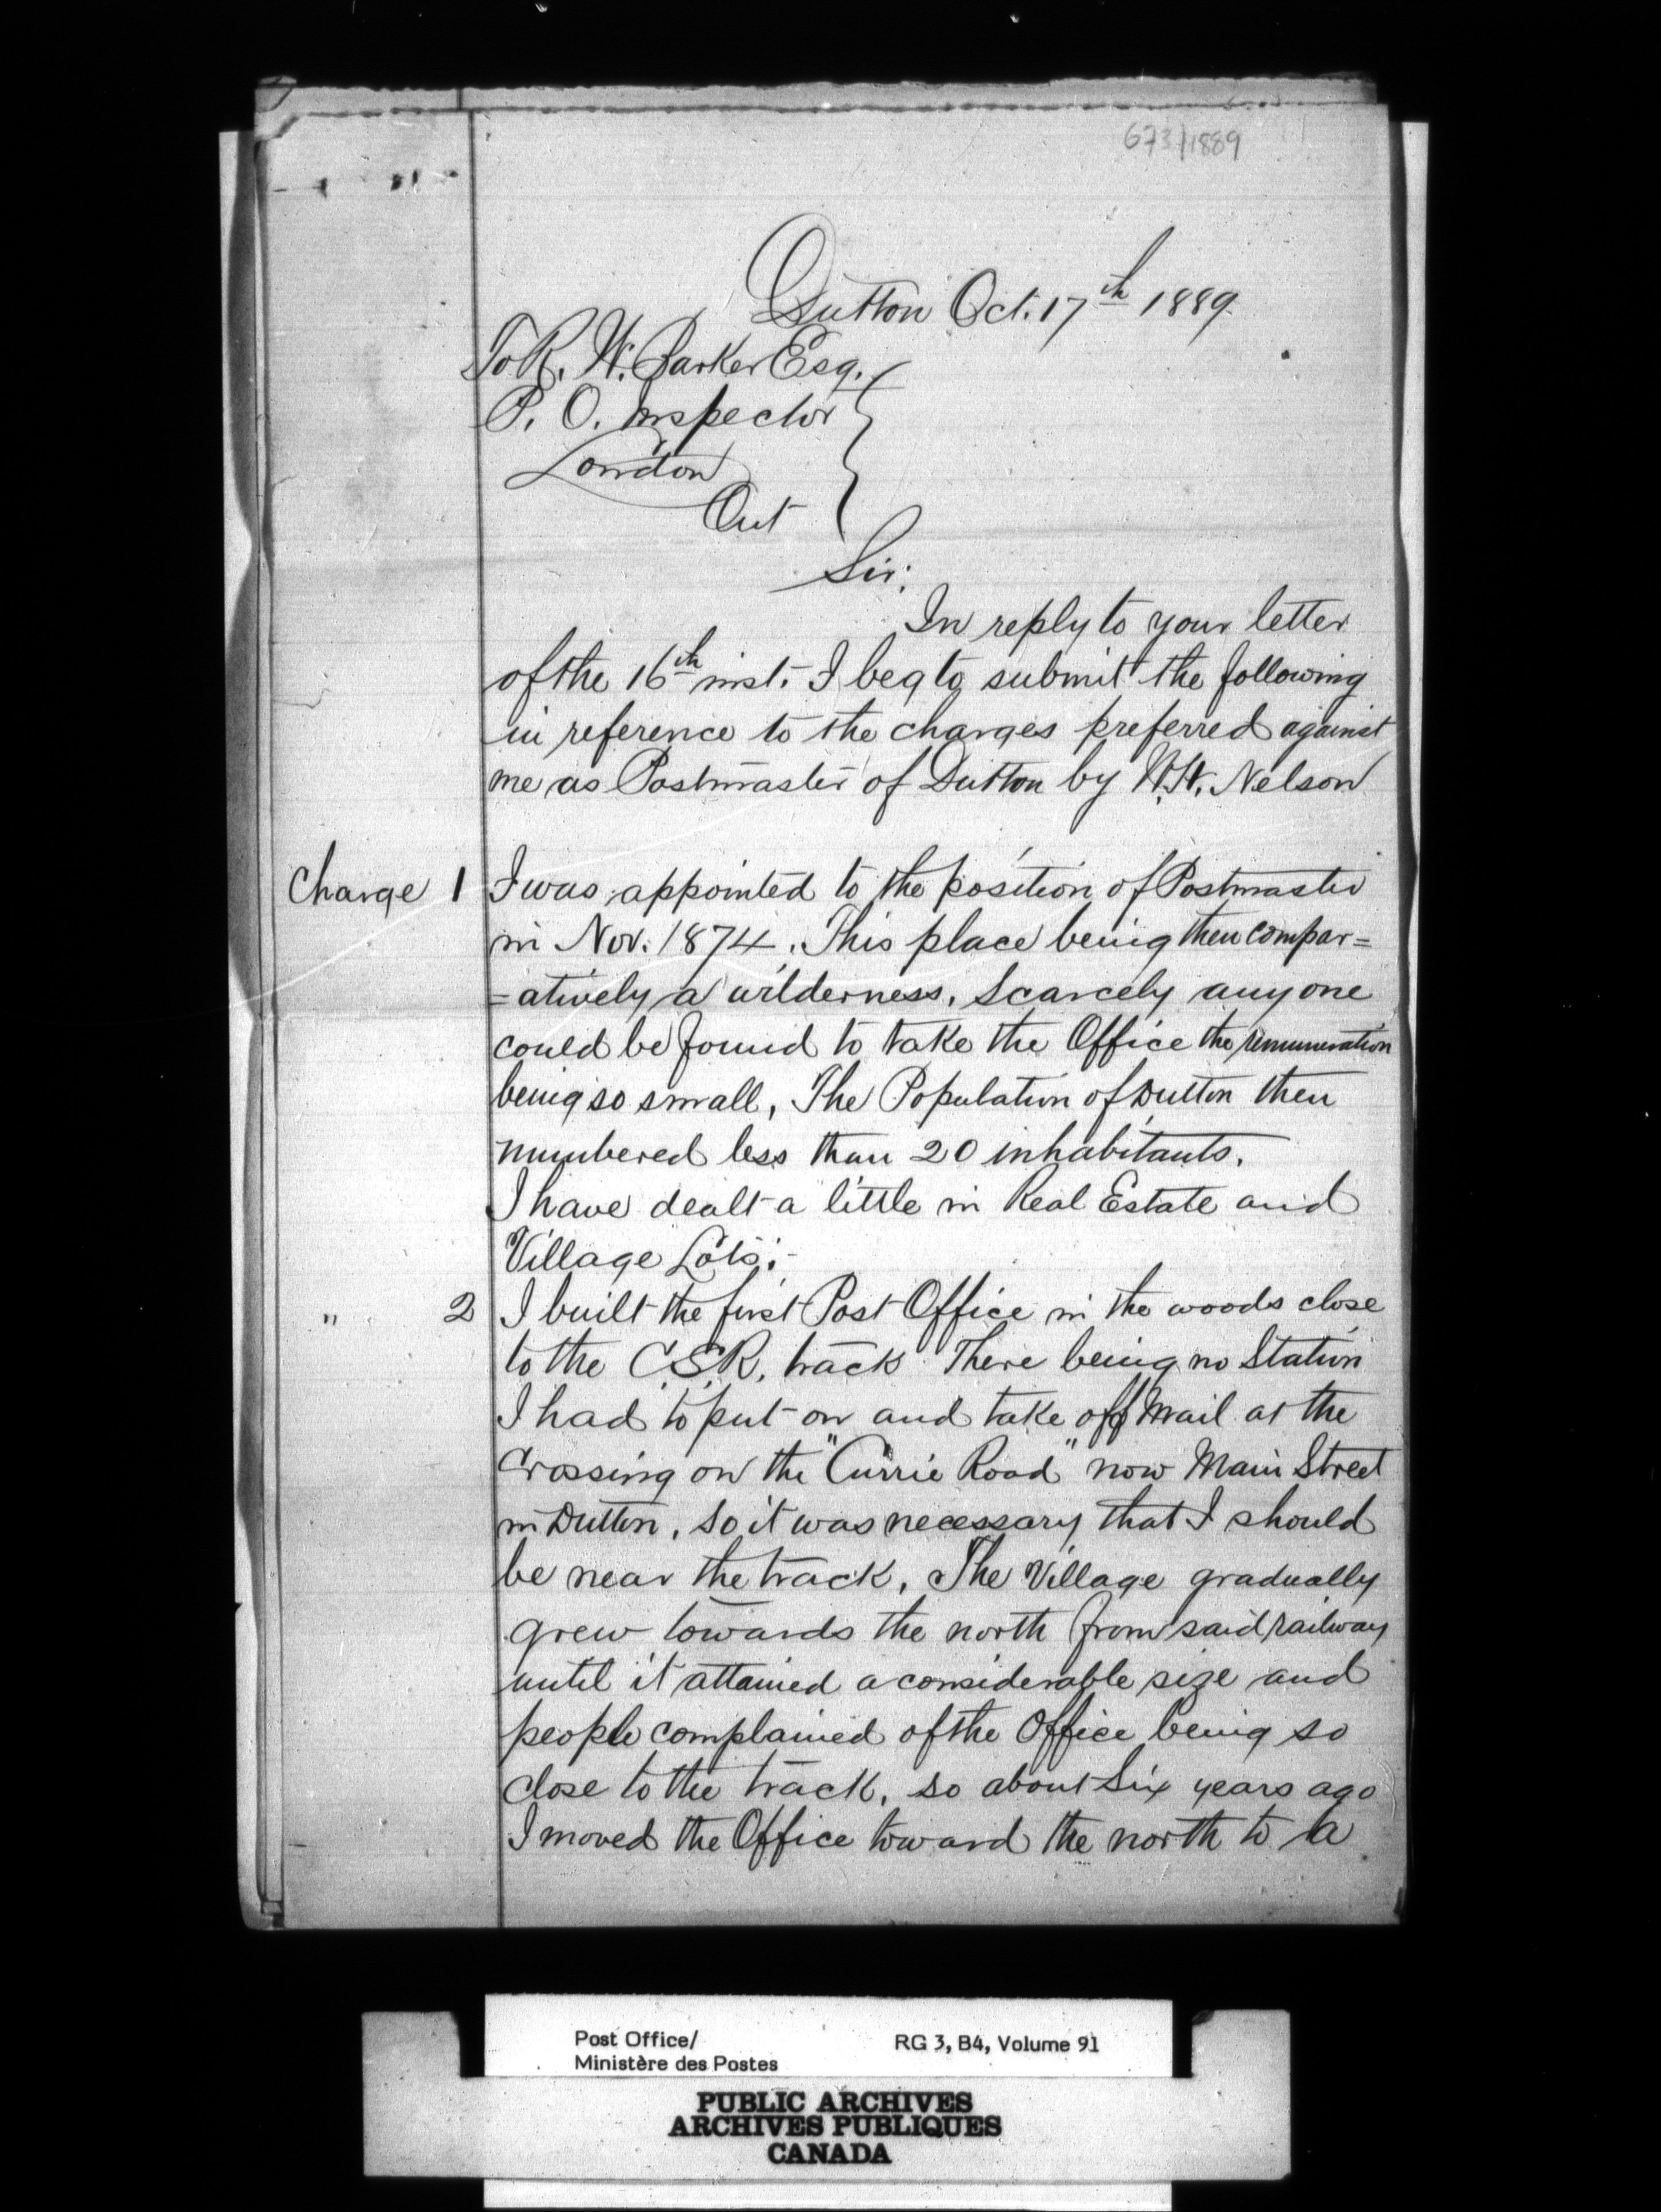 673/1889
Dutton Oct. 17th 1889.
To R. W. Barker Esq.
P. O. Inspector
London
Ont
Sir:
In reply to your letter
of the 16th inst. I beg to submit the following
in reference to the charges preferred against
me as Postmaster of Dutton by W.H. Nelson
Charge 1 I was appointed to the position of Postmaster
in Nov. 1874. This place being then compar=
=atively a wilderness, Scarcely any one
could be found to take the Office the remuneration
being so small, The Population of Dutton then
numbered less than 20 inhabitants.
I have dealt a little in Real Estate and
Village Lots.-
" 2 I built the first Post Office in the woods close
to the C.S.R. track There being no Station
I had to put on and take off Mail at the
Crossing on the "Currie Road" now Main Street
in Dutton, So it was necessary that I should
be near the track, The Village gradually
grew towards the north from said railway
until it attained a considerable size and
people complained of the Office being so
close to the track, so about Six years ago
I moved the Office toward the north to a
Post Office/ RG 3, B4, Volume 91
Ministère des Postes
PUBLIC ARCHIVES
ARCHIVES PUBLIQUES
CANADA